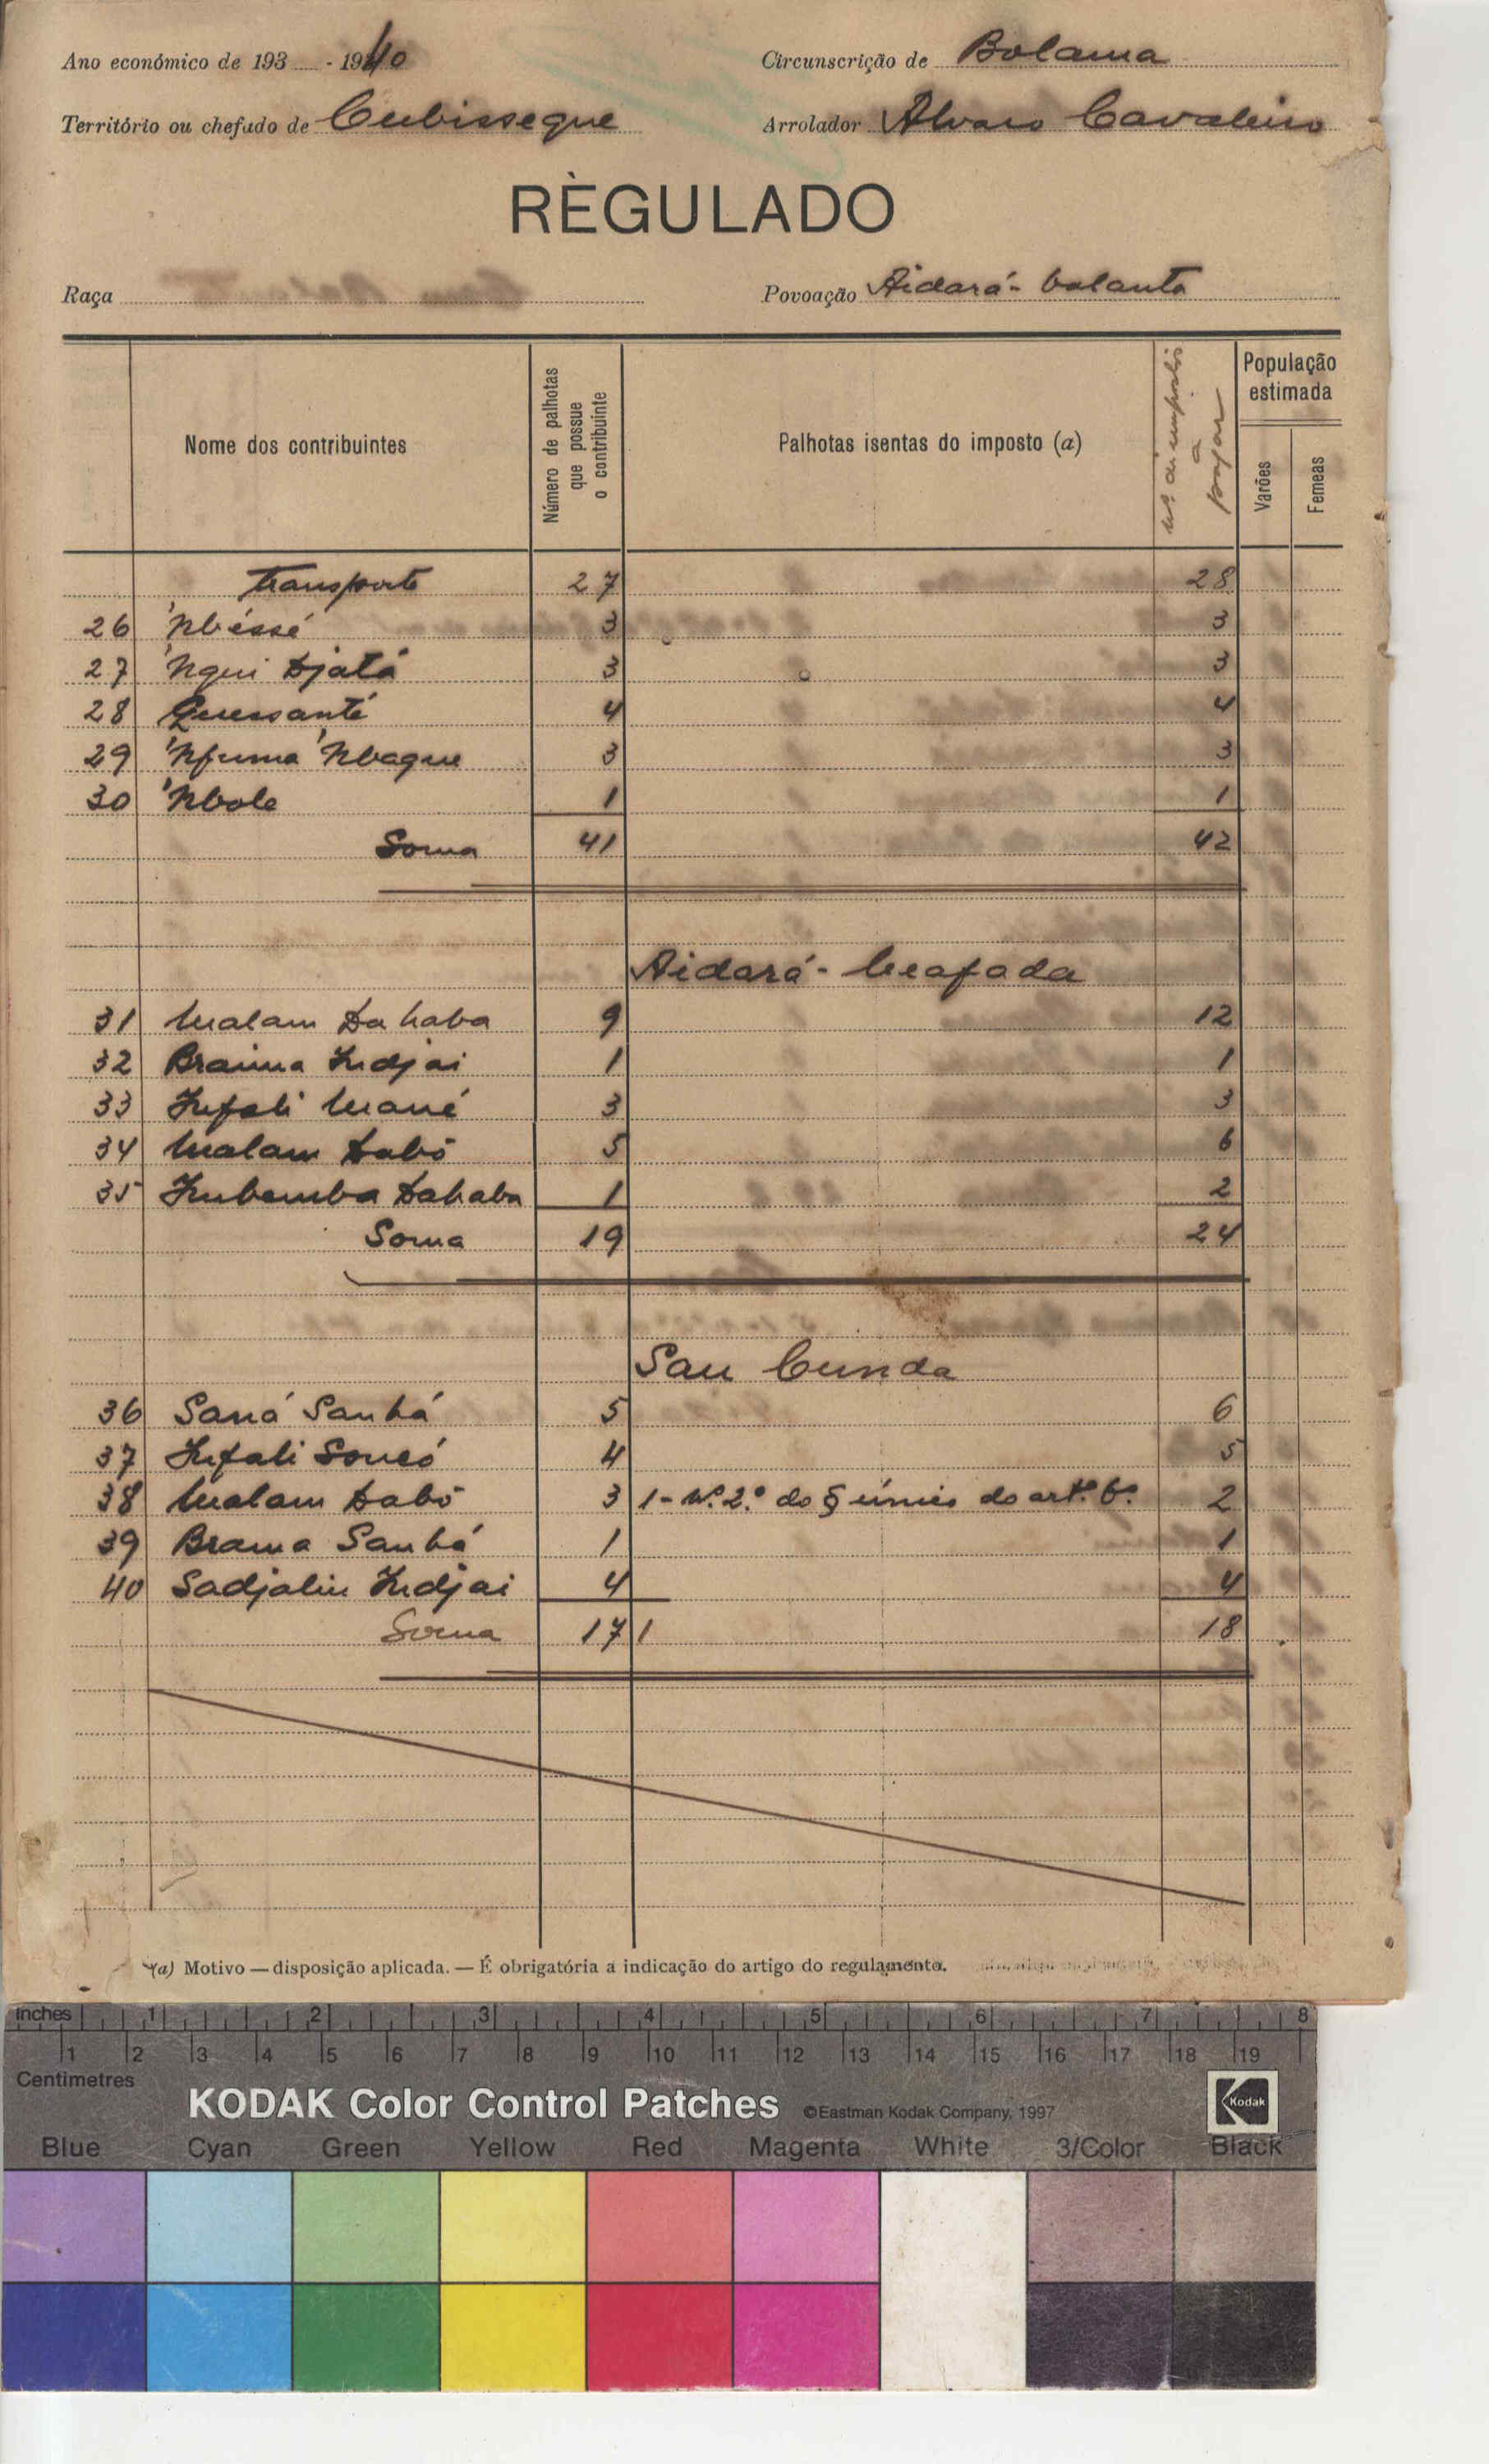 Ano económico de 193 - 1940 Circunscrição de Bolama
Território ou chefado de Cubisseque Arrolador Alvaro Cavaleiro
RÈGULADO
Raça Povoação Aidará - balanta
Nome dos contribuintes Número de palhotas que possue o contribuinte Palhotas isentas do imposto (a) nº de impostos a pagar População estimada Varões Femeas
Transporte 27 28
26 'Nbéssé 3 3
27 'Nqui Djatá 3 3
28 Quessanté 4 4
29 'Nfuma 'Nbaque 3 3
30 'Nbole 1 1
Soma 41 42
Aidará - beafada
31 Malam Dahaba 9 12
32 Braima Indjai 1 1
33 Infali Mané 3 3
34 Malam Dabó 5 6
35 Inbemba Dahaba 1 2
Soma 19 24
San Cunda
36 Saná Sanhá 5 6
37 Infali Soncó 4 5
38 Malam Dabó 3 1 - Nº 2.º do § único do artº 6º 2
39 Brama Sanhá 1 1
40 Sadjaliu Indjai 4 4
Soma 17 1 18
(a) Motivo — disposição aplicada. — É obrigatória a indicação do artigo do regulamento.
inches 1 2 3 4 5 6 7 8
1 2 3 4 5 6 7 8 9 10 11 12 13 14 15 16 17 18 19
Centimetres
KODAK Color Control Patches ©Eastman Kodak Company, 1997 Kodak
Blue Cyan Green Yellow Red Magenta White 3/Color Black